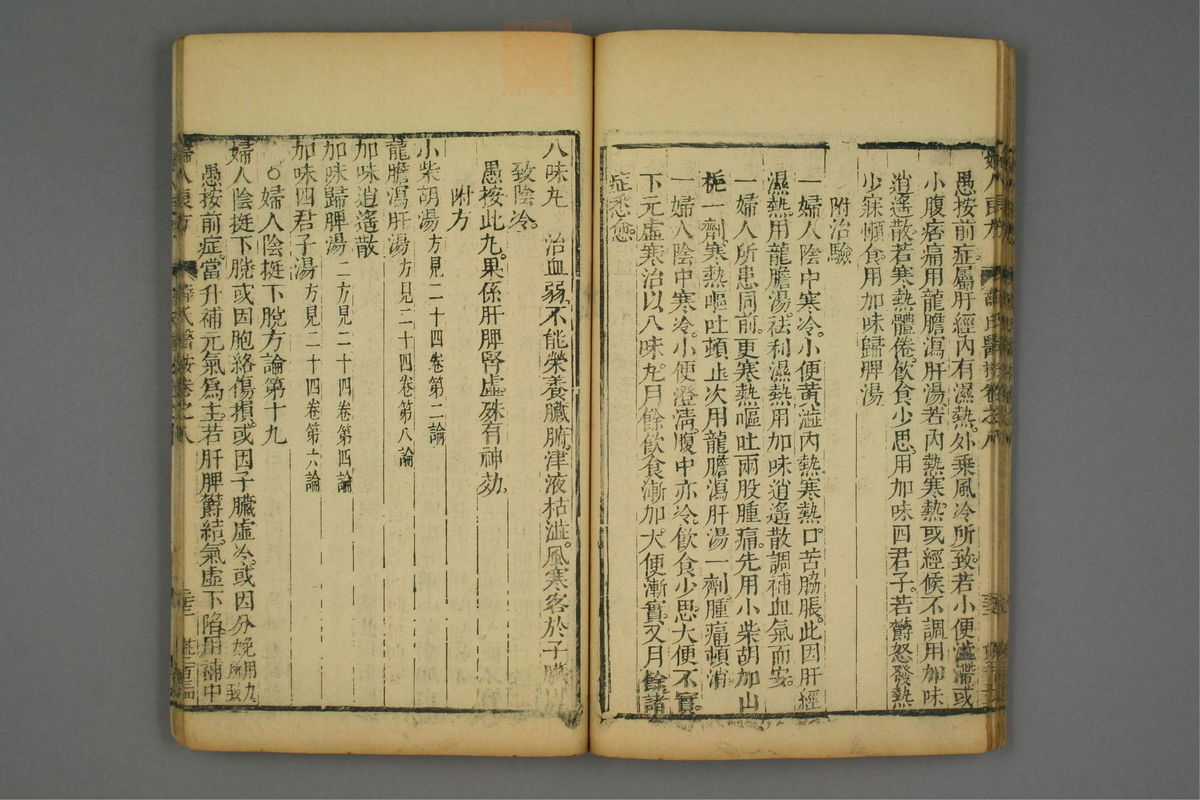 愚按前症屬肝經內有濕熱。外乘風冷所致。若小便澁滯或
小腹痞痛用龍膽瀉肝湯若內熱寒熱或經候不調用加味
逍遙散若寒熱體倦。飲食少思。用加味四君子。若鬱怒發熱
少寐懶食用加味歸脾湯
附治驗
一婦人陰中寒冷。小便黃澁內熱寒熱口苦脇脹。此因肝經
濕熱。用龍膽湯。祛利濕熱用加味逍遙散調補血氣而安。
一婦人所患同前。更寒熱嘔吐兩股腫痛先用小柴胡加山
梔一劑。寒熱嘔吐頓止次用龍膽瀉肝湯一劑。腫痛頓消
一婦人陰中寒冷。小便澄清。腹中亦冷。飲食少思大便不實。
下元虛寒治以八味丸。月餘飲食漸加。大便漸實。又月餘諸
症悉愈。
八味丸 治血弱。不能榮養臟腑。津液枯澁。風寒客於子臟
致陰冷。
愚按此丸。果係肝脾腎虛。殊有神効。
附方
小柴胡湯方見二十四卷第二論
龍膽瀉肝湯方見二十四卷第八論
加味逍遙散
加味歸脾湯二方見二十四卷第四論
加味四君子湯方見二十四卷第六論
○婦人陰挺下脫方論第十九
婦人陰挺下脫或因胞絡傷損。或因子臟虛冷。或因分娩用力所致
愚按前症。當升補元氣爲主。若肝脾鬱結。氣虛下陷。用補中
婦人良方
薛氏醫按卷之八